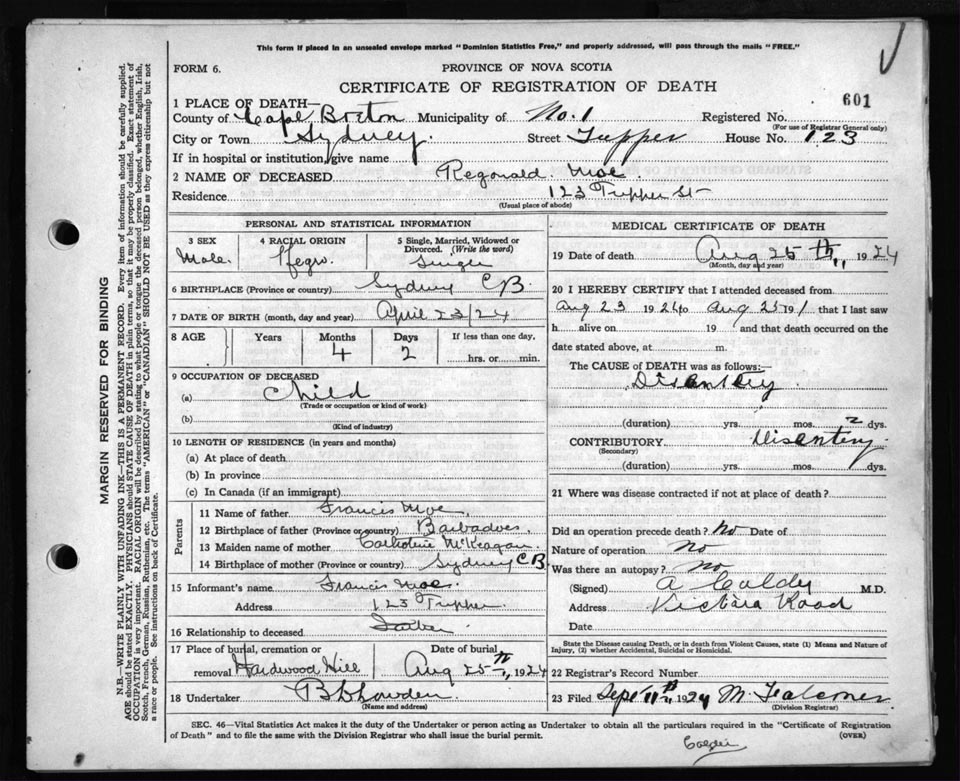 This form if placed in an unsealed envelope marked "Dominion Statistics Free," and properly addressed, will pass through the mails "FREE."
FORM 6. PROVINCE OF NOVA SCOTIA
CERTIFICATE OF REGISTRATION OF DEATH
601
1 PLACE OF DEATH—
County of Cape Breton Municipality of No. 1 Registered No.
(For use of Registrar General only)
City or Town Sydney. Street Tupper House No. 123
If in hospital or institution, give name
2 NAME OF DECEASED Regonald. Moe.
Residence 123 Tupper St
(Usual place of abode)
PERSONAL AND STATISTICAL INFORMATION
3 SEX 4 RACIAL ORIGIN 5 Single, Married, Widowed or Divorced. (Write the word)
Male. Negro. Single
6 BIRTHPLACE (Province or country) Sydney CB
7 DATE OF BIRTH (month, day and year) April 23/24
8 AGE Years Months Days If less than one day,
4 2 hrs. or min.
9 OCCUPATION OF DECEASED
(a) Child
(Trade or occupation or kind of work)
(b)
(Kind of industry)
10 LENGTH OF RESIDENCE (in years and months)
(a) At place of death
(b) In province
(c) In Canada (if an immigrant)
Parents
11 Name of father Francis Moe.
12 Birthplace of father (Province or country) Barbadoes.
13 Maiden name of mother McKeagan
14 Birthplace of mother (Province or country) Sydney CB
15 Informant's name Francis Moe.
Address 123 Tupper.
16 Relationship to deceased Father
17 Place of burial, cremation or removal Hardwood Hill Date of burial Aug 25th, 1924
18 Undertaker
(Name and address)
MEDICAL CERTIFICATE OF DEATH
19 Date of death Aug 25th, 1924
(Month, day and year)
20 I HEREBY CERTIFY that I attended deceased from
Aug 23 1924 to Aug 25 191 that I last saw
h alive on 19 and that death occurred on the
date stated above, at m.
The CAUSE of DEATH was as follows:—
Disentery
(duration) yrs. mos. 2 dys.
CONTRIBUTORY Disentery
(Secondary)
(duration) yrs. mos. dys.
21 Where was disease contracted if not at place of death?
Did an operation precede death? No Date of
Nature of operation No
Was there an autopsy? No
(Signed) A Calder M.D.
Address Victoria Road
Date
State the Disease causing Death, or in death from Violent Causes, state (1) Means and Nature of Injury, (2) whether Accidental, Suicidal or Homicidal.
22 Registrar's Record Number
23 Filed Sept 11th, 1924 M. Falconer
(Division Registrar)
SEC. 46—Vital Statistics Act makes it the duty of the Undertaker or person acting as Undertaker to obtain all the particulars required in the "Certificate of Registration
of Death" and to file the same with the Division Registrar who shall issue the burial permit. (OVER)
Calder
MARGIN RESERVED FOR BINDING
N.B.—WRITE PLAINLY WITH UNFADING INK—THIS IS A PERMANENT RECORD. Every item of information should be carefully supplied.
AGE should be stated EXACTLY. PHYSICIANS should STATE CAUSE OF DEATH in plain terms, so that it may be properly classified. Exact statement of
OCCUPATION is very important. RACIAL ORIGIN will be described by stating to what people or tongue the deceased person belonged, whether English, Irish,
Scotch, French, German, Russian, Ruthenian, etc. The terms "AMERICAN" or "CANADIAN" SHOULD NOT BE USED as they express citizenship but not
a race or people. See instructions on back of Certificate.